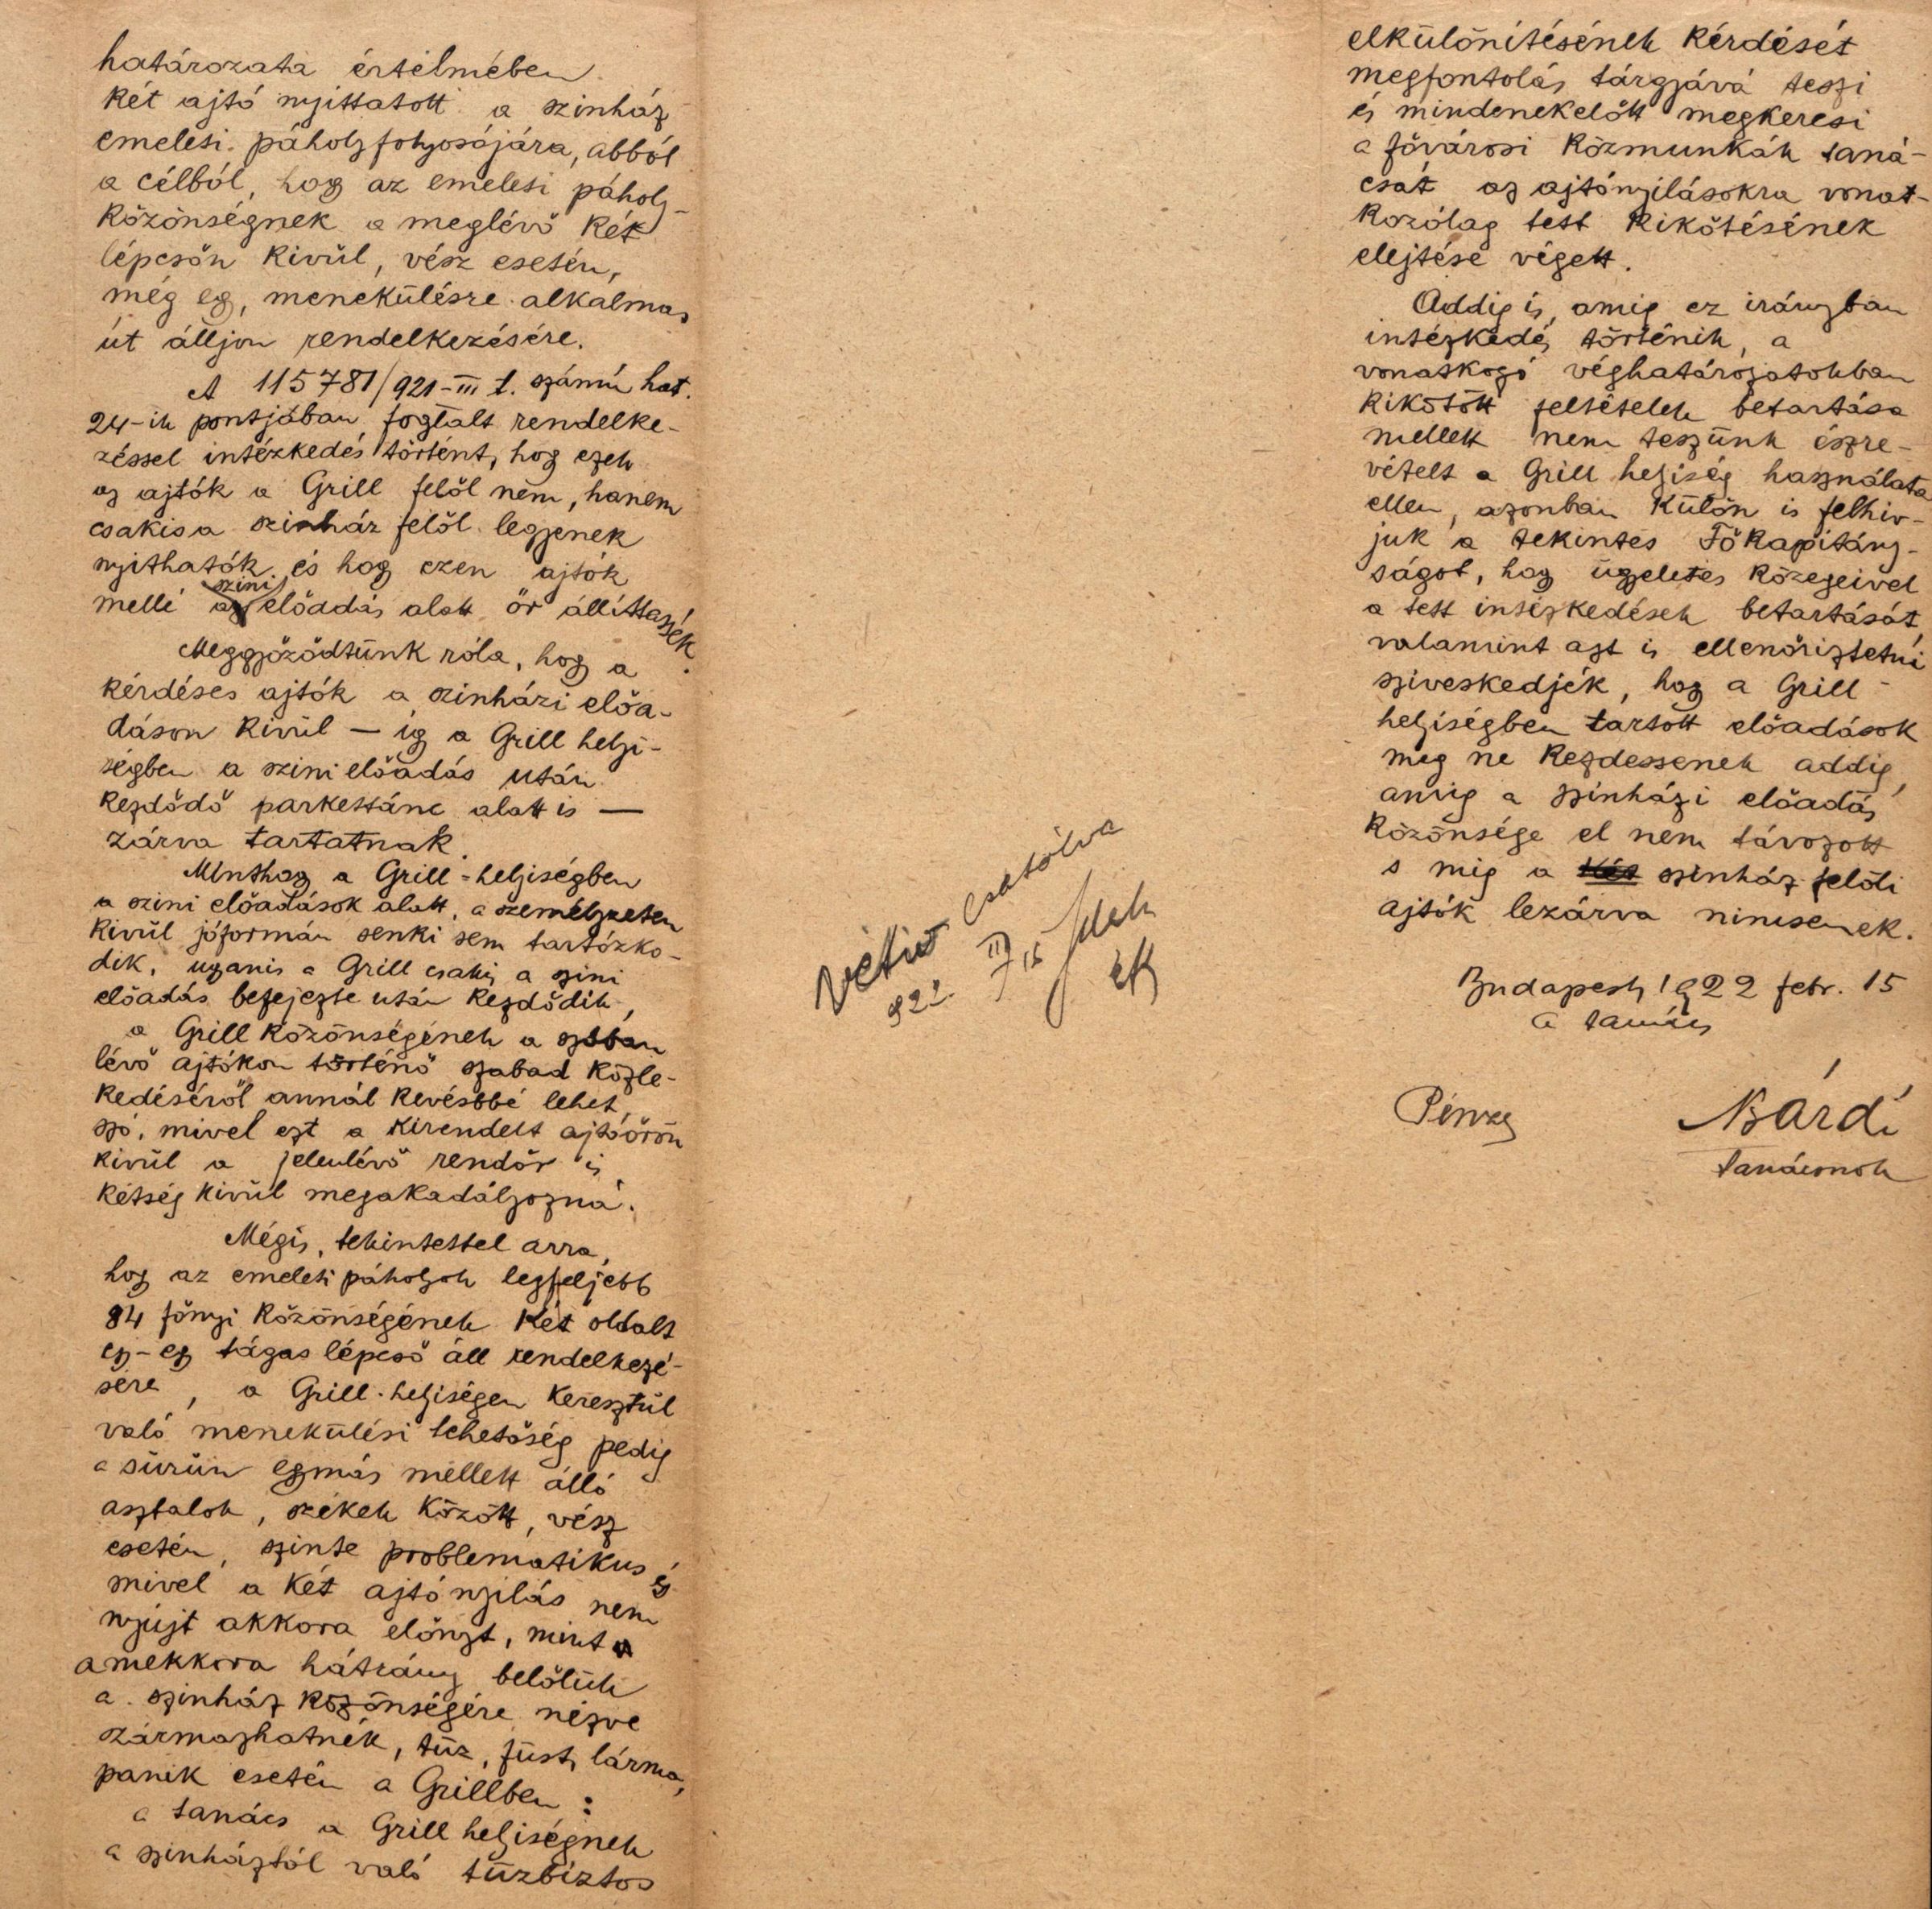 határozata értelmében
két ajtó nyittatott a szinház
emeleti páholyfolyosójára, abból
a célból, hogy az emeleti páholy-
közönségnek a meglévő két
lépcsőn kivül, vész esetén,
még egy, menekülésre alkalmas
út álljon rendelkezésére.
A 115781/921-III t. számú hat.
24-ik pontjában foglalt rendelke-
zéssel intézkedés történt, hogy ezek
az ajtók a Grill felől nem, hanem
csakis a szinház felől legyenek
nyithatók és hogy ezen ajtók
mellé szini előadás alatt őr állíttassék.
Meggyőződtünk róla, hogy a
kérdéses ajtók a szinházi előa-
dáson kivül — igy a Grill helyi-
ségben a szini előadás után
kezdődő parkettánc alatt is —
zárva tartatnak.
Minthogy a Grill-helyiségben
a szini előadások alatt, a személyzeten
kivül jóformán senki sem tartózko-
dik, ugyanis a Grill csakis a szini
előadás befejezte után kezdődik,
a Grill közönségének a szóban
lévő ajtókon történő szabad közle-
kedéséről annál kevésbbé lehet
szó, mivel ezt a kirendelt ajtóőrön
kivül a jelenlévő rendőr is
kétség kivül megakadályozná.
Mégis, tekintettel arra,
hogy az emeleti páholyok legfeljebb
84 főnyi közönségének két oldalt
egy-egy tágas lépcső áll rendelkezé-
sére, a Grill-helyiségen keresztül
való menekülési lehetőség pedig
a sürün egymás mellett álló
asztalok, székek között, vész
esetén, szinte problematikus és
mivel a két ajtónyilás nem
nyújt akkora előnyt, mint a
amekkora hátrány belőlük
a szinház közönségére nézve
származhatnék, tüz, füst, lárma,
panik esetén a Grillben:
a tanács a Grill helyiségnek
a szinháztól való tüzbiztos
Vétiv csatolva
922 III/15
elkülönitésének kérdését
megfontolás tárgyává teszi
és mindenekelőtt megkeresi
a fővárosi közmunkák taná-
csát az ajtónyilásokra vonat-
kozólag tett kikötésének
elejtése végett.
Addig is, amig ez irányban
intézkedés történik, a
vonatkozó véghatározatokban
kikötött feltételek betartása
mellett nem teszünk észre-
vételt a Grill helyiség használata
ellen, azonban külön is felhiv-
juk a tekintetes Főkapitány-
ságot, hogy ügyeletes közegeivel
a tett intézkedések betartását,
valamint azt is ellenőriztetni
sziveskedjék, hogy a Grill
helyiségben tartott előadások
meg ne kezdessenek addig,
amig a szinházi előadás
közönsége el nem távozott
s mig a szinház felőli
ajtók lezárva nincsenek.
Budapest, 1922 febr. 15
a tanács
Bárdi
tanácsnok